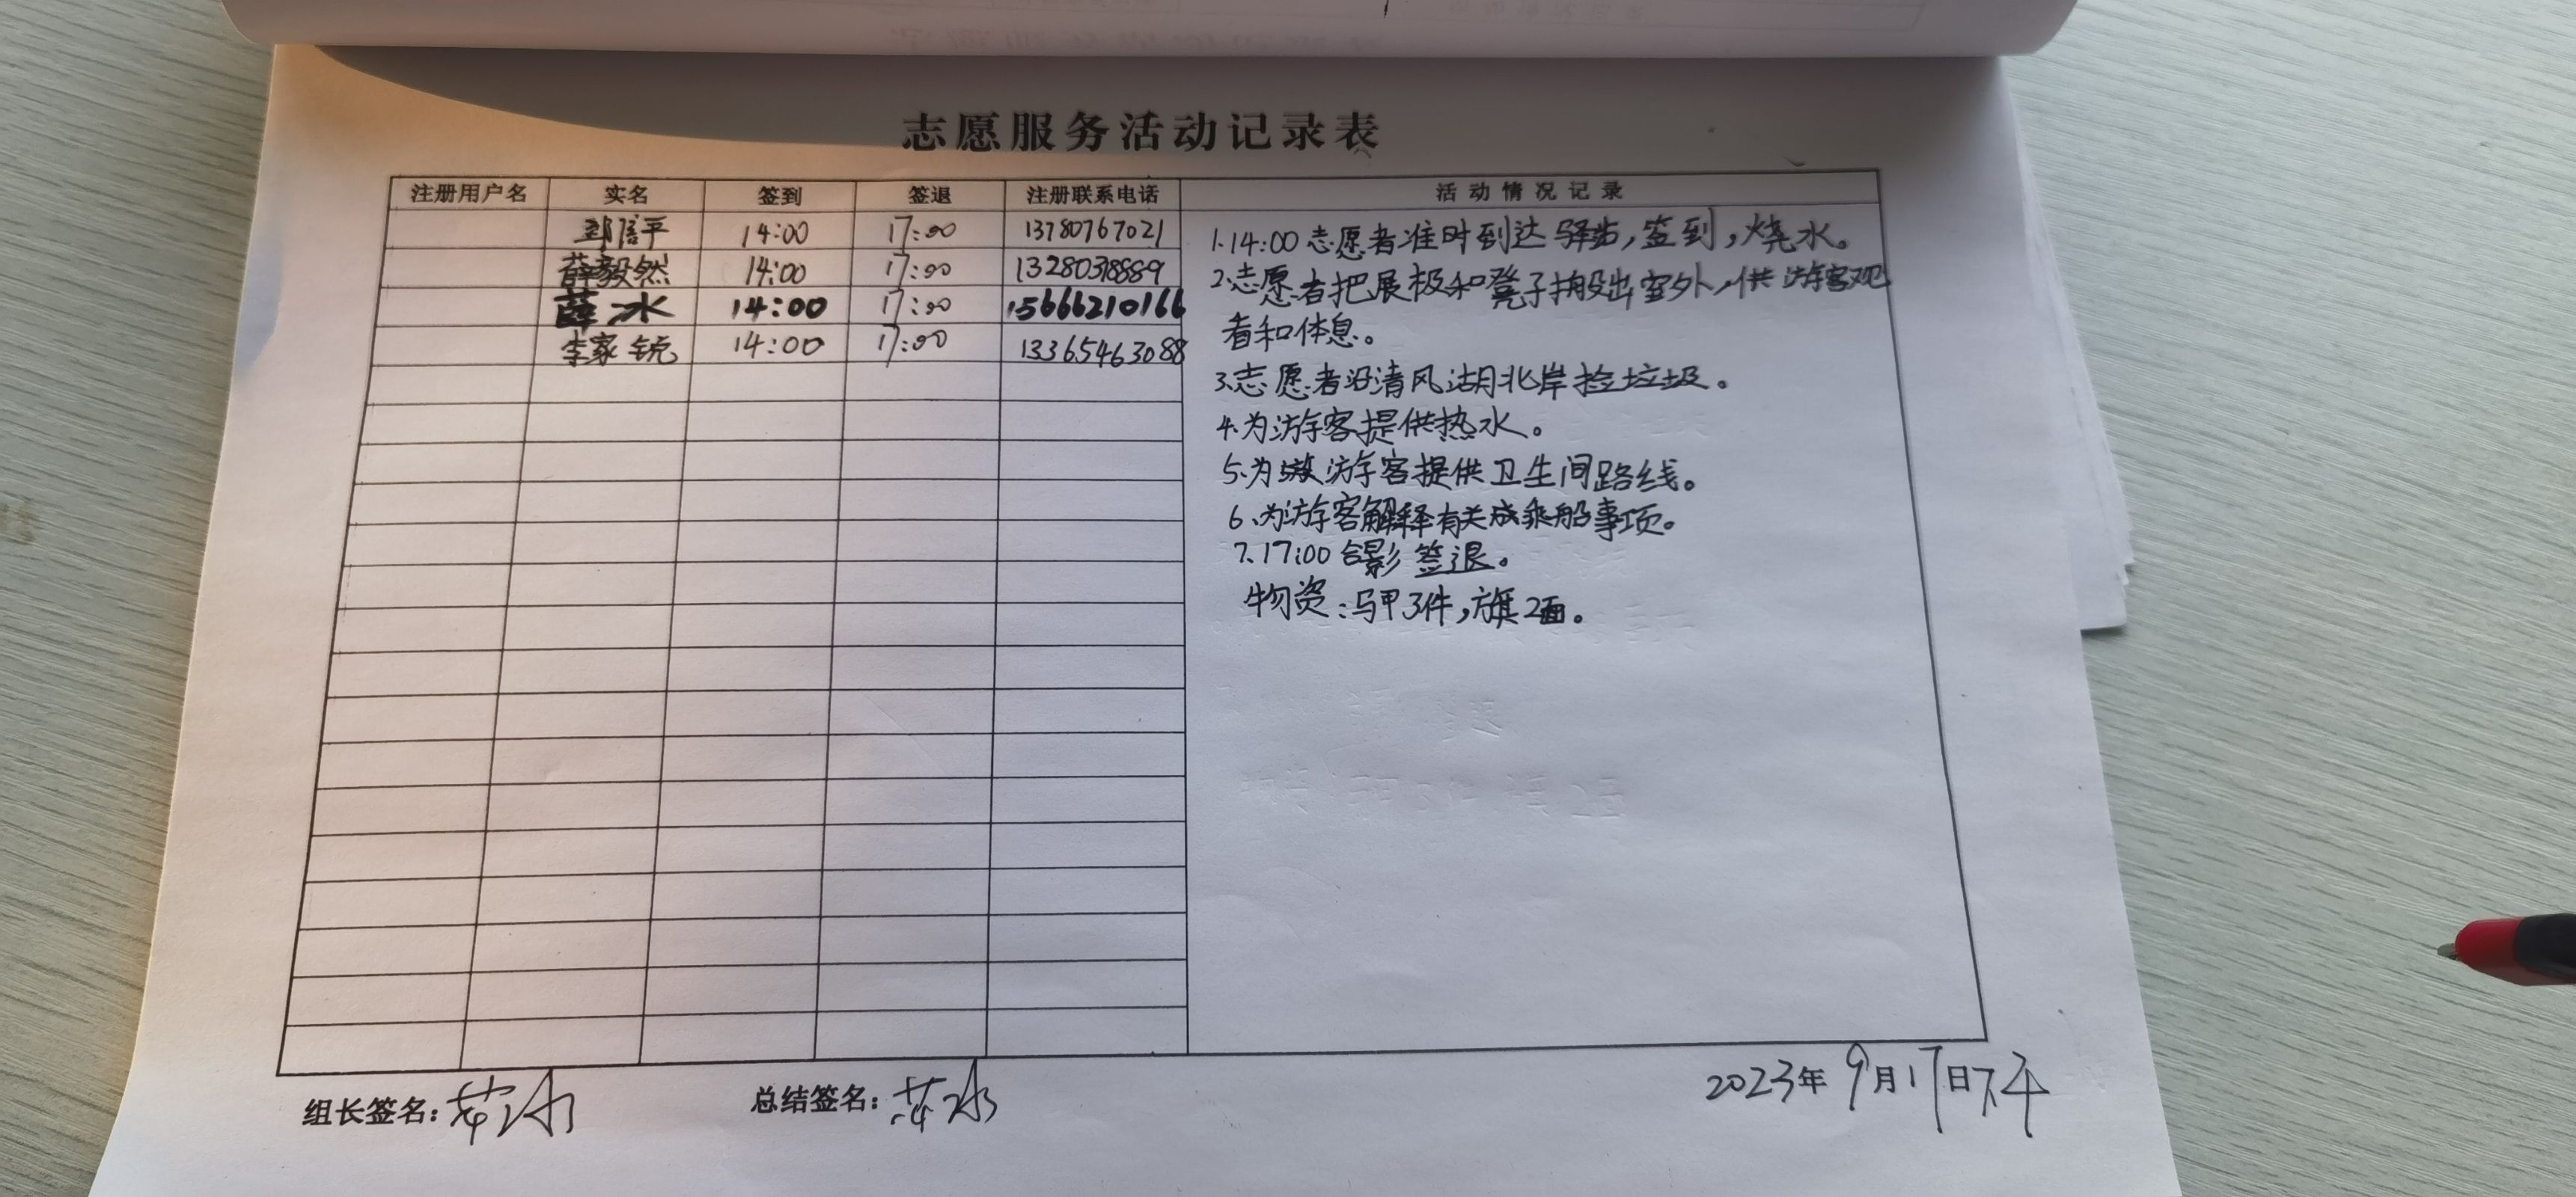 志愿服务活动记录表
注册用户名 实名 签到 签退 注册联系电话 活动情况记录
郭信平 14:00 17:00 13780767021
薛毅然 14:00 17:00 13280378889
薛冰 14:00 17:00 15666210166
李家锐 14:00 17:00 13365463088
1.14:00志愿者准时到达驿站,签到,烧水。
2.志愿者把展板和凳子搬出室外,供游客观
看和休息。
3.志愿者沿清风湖北岸捡垃圾。
4.为游客提供热水。
5.为游客提供卫生间路线。
6.为游客解释有关乘船事项。
7.17:00合影签退。
物资:马甲3件,旗2面。
组长签名:薛冰 总结签名:薛冰 2023年9月17日下午